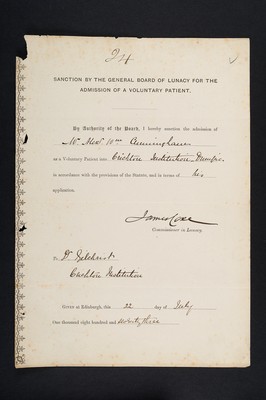 SANCTION BY THE GENERAL BOARD OF LUNACY FOR THE
ADMISSION OF A VOLUNTARY PATIENT.
By Authority of the Board, I hereby sanction the admission of
Mr Alexr Wm Cunningham
as a Voluntary Patient into Crichton Institution, Dumfries
in accordance with the provisions of the Statute, and in terms of his
application.
James Coxe
Commissioner in Lunacy.
To Dr Gilchrist
Crichton Institution
Given at Edinburgh, this 22 day of July
One thousand eight hundred and seventy three